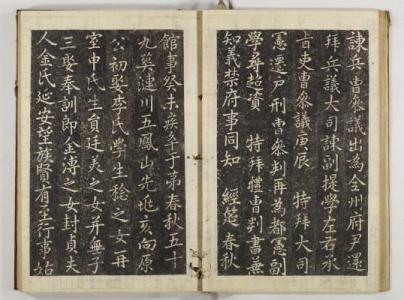 諫兵曹叅議出為全州府尹還
拜兵議大司諫副提學左右承
旨吏曹叅議庚辰 特拜大司
憲還戸刑曹叅判再為都憲副
學尋超資 特拜禮曹判書兼
知義禁府事同知 經筵春秋
館事癸未疾卒于第春秋五十
九葬漣川五鳳山先塋亥向原
公初娶李氏學生稔之女再
室申氏生員廷美之女并無子
三娶奉訓郎金漙之女封貞夫
人金氏延安望族賢有至行事姑